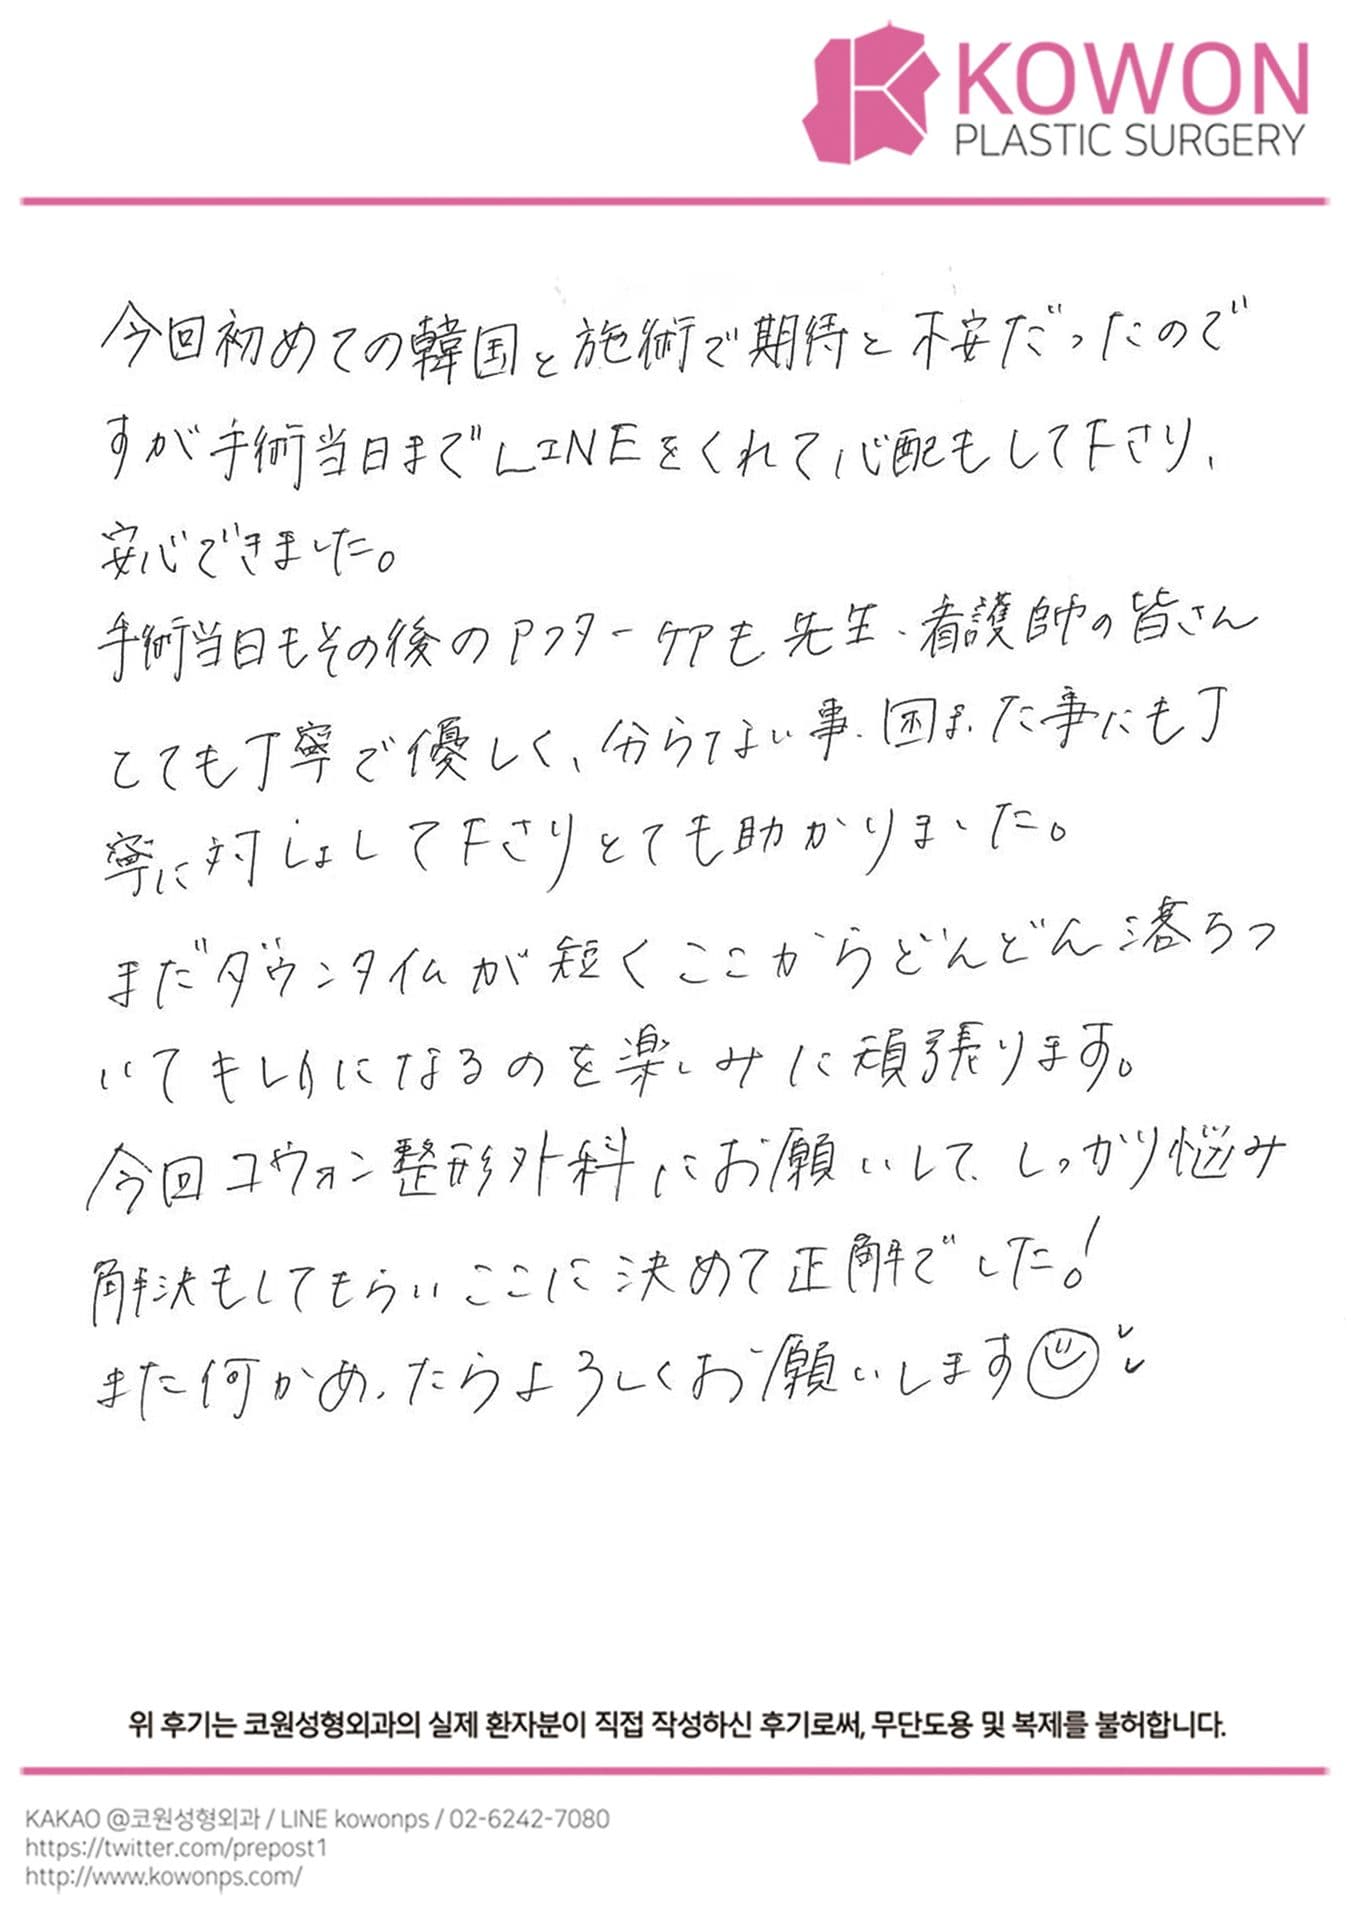 KOWON
PLASTIC SURGERY
今回初めての韓国と施術で期待と不安だったので
すが手術当日までLINEをくれて心配もして下さり、
安心できました。
手術当日もその後のアフターケアも先生、看護師の皆さん
とても丁寧で優しく、分らない事、困った事にも丁
寧に対しょして下さりとても助かりました。
まだダウンタイムが短くここからどんどん落ちつ
いてキレイになるのを楽しみに頑張ります。
今回コウォン整形外科にお願いして、しっかり悩み
解決もしてもらいここに決めて正解でした!
また何かあったらよろしくお願いします
위 후기는 코원성형외과의 실제 환자분이 직접 작성하신 후기로써, 무단도용 및 복제를 불허합니다.
KAKAO @코원성형외과 / LINE kowonps / 02-6242-7080
https://twitter.com/prepost1
http://www.kowonps.com/